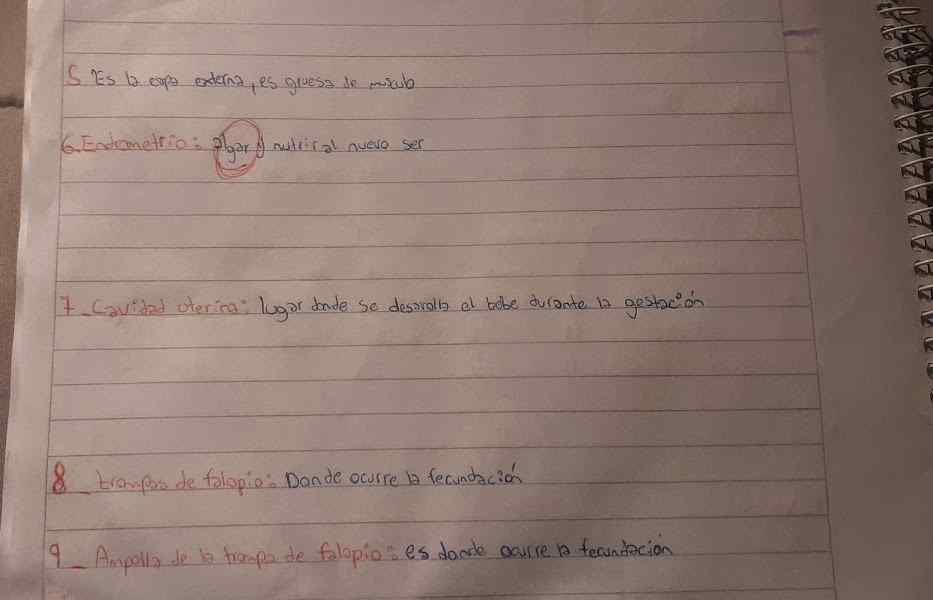 5 Es la capa externa, es gruesa de musculo
6. Endometrio: algar y nutrir al nuevo ser
7_ Cavidad uterina: lugar donde se desarolla el bebe durante la gestación
8_ trompas de falopio: Donde ocurre la fecundación
9_ Ampolla de la trompa de falopio: es donde ocurre la fecundación